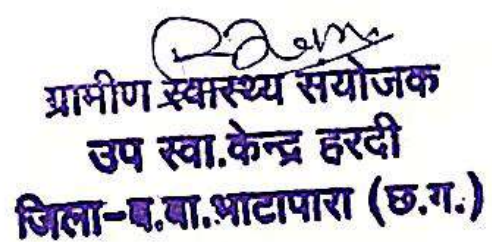 ग्रामीण स्वास्थ्य सयोजक
उप स्वा.केन्द्र हरदी
जिला-ब.बा.भाटापारा (छ.ग.)